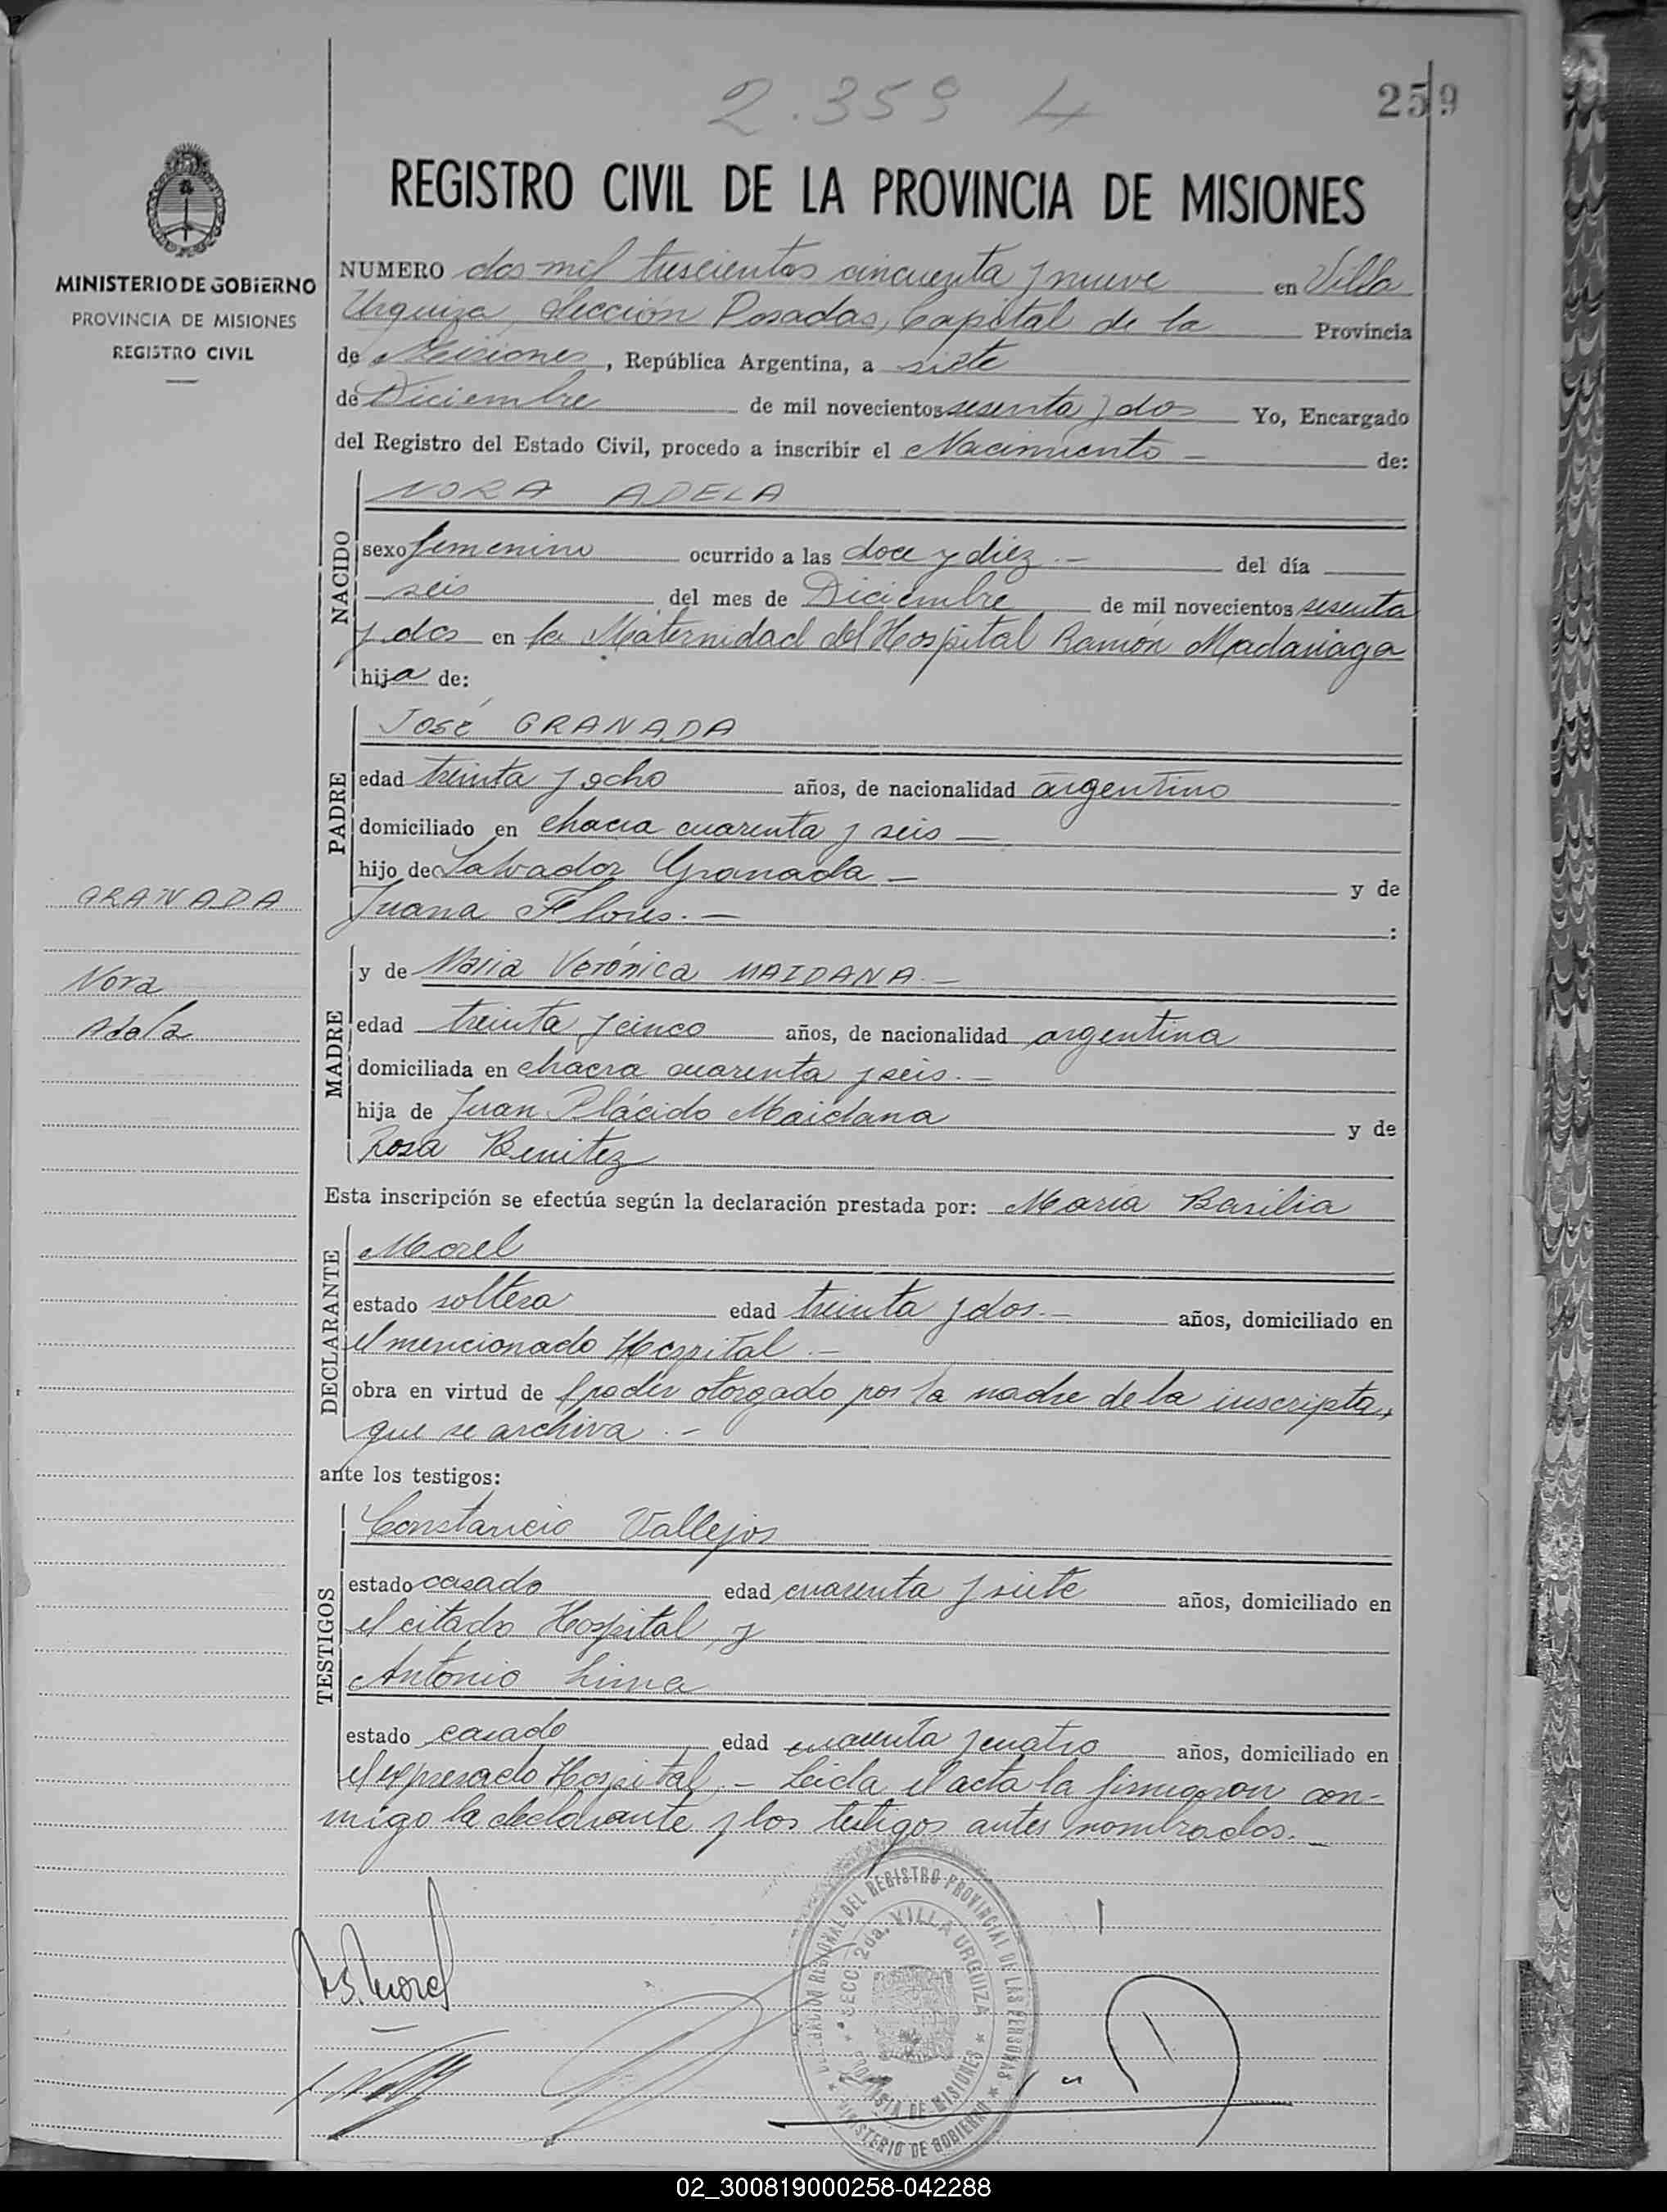 2.359 4
259
REGISTRO CIVIL DE LA PROVINCIA DE MISIONES
MINISTERIO DE GOBIERNO
PROVINCIA DE MISIONES
REGISTRO CIVIL
NUMERO dos mil trescientos cincuenta y nueve en Villa
Urquiza, Sección Posadas, Capital de la Provincia
de Misiones, República Argentina, a siete
de Diciembre de mil novecientos sesenta y dos Yo, Encargado
del Registro del Estado Civil, procedo a inscribir el Nacimiento – de:
NACIDO
NORA ADELA
sexo femenino ocurrido a las doce y diez.– del día
seis del mes de Diciembre de mil novecientos sesenta
y dos en la Maternidad del Hospital Ramón Madariaga
hija de:
PADRE
JOSÉ GRANADA
edad treinta y ocho años, de nacionalidad argentino
domiciliado en chacra cuarenta y seis –
hijo de Salvador Granada – y de
Juana Flores. – :
GRANADA
Nora
Adela
MADRE
y de María Verónica MAIDANA.–
edad treinta y cinco años, de nacionalidad argentina
domiciliada en chacra cuarenta y seis.–
hija de Juan Plácido Maidana y de
Rosa Benitez
Esta inscripción se efectúa según la declaración prestada por: María Basilia
DECLARANTE
Morel
estado soltera edad treinta y dos.– años, domiciliado en
el mencionado Hospital.–
obra en virtud de poder otorgado por la madre de la inscripta,
que se archiva.–
ante los testigos:
TESTIGOS
Constancio Vallejos
estado casado edad cuarenta y siete años, domiciliado en
el citado Hospital, y
Antonio Lima
estado casado edad cuarenta y cuatro años, domiciliado en
el expresado Hospital.– Leida el acta la firmaron con-
migo la declarante y los testigos antes nombrados.–
DELEGACION REGIONAL DEL REGISTRO PROVINCIAL DE LAS PERSONAS
SECC. 2da. VILLA URQUIZA
PROVINCIA DE MISIONES
MINISTERIO DE GOBIERNO
B. Morel
02_300819000258-042288